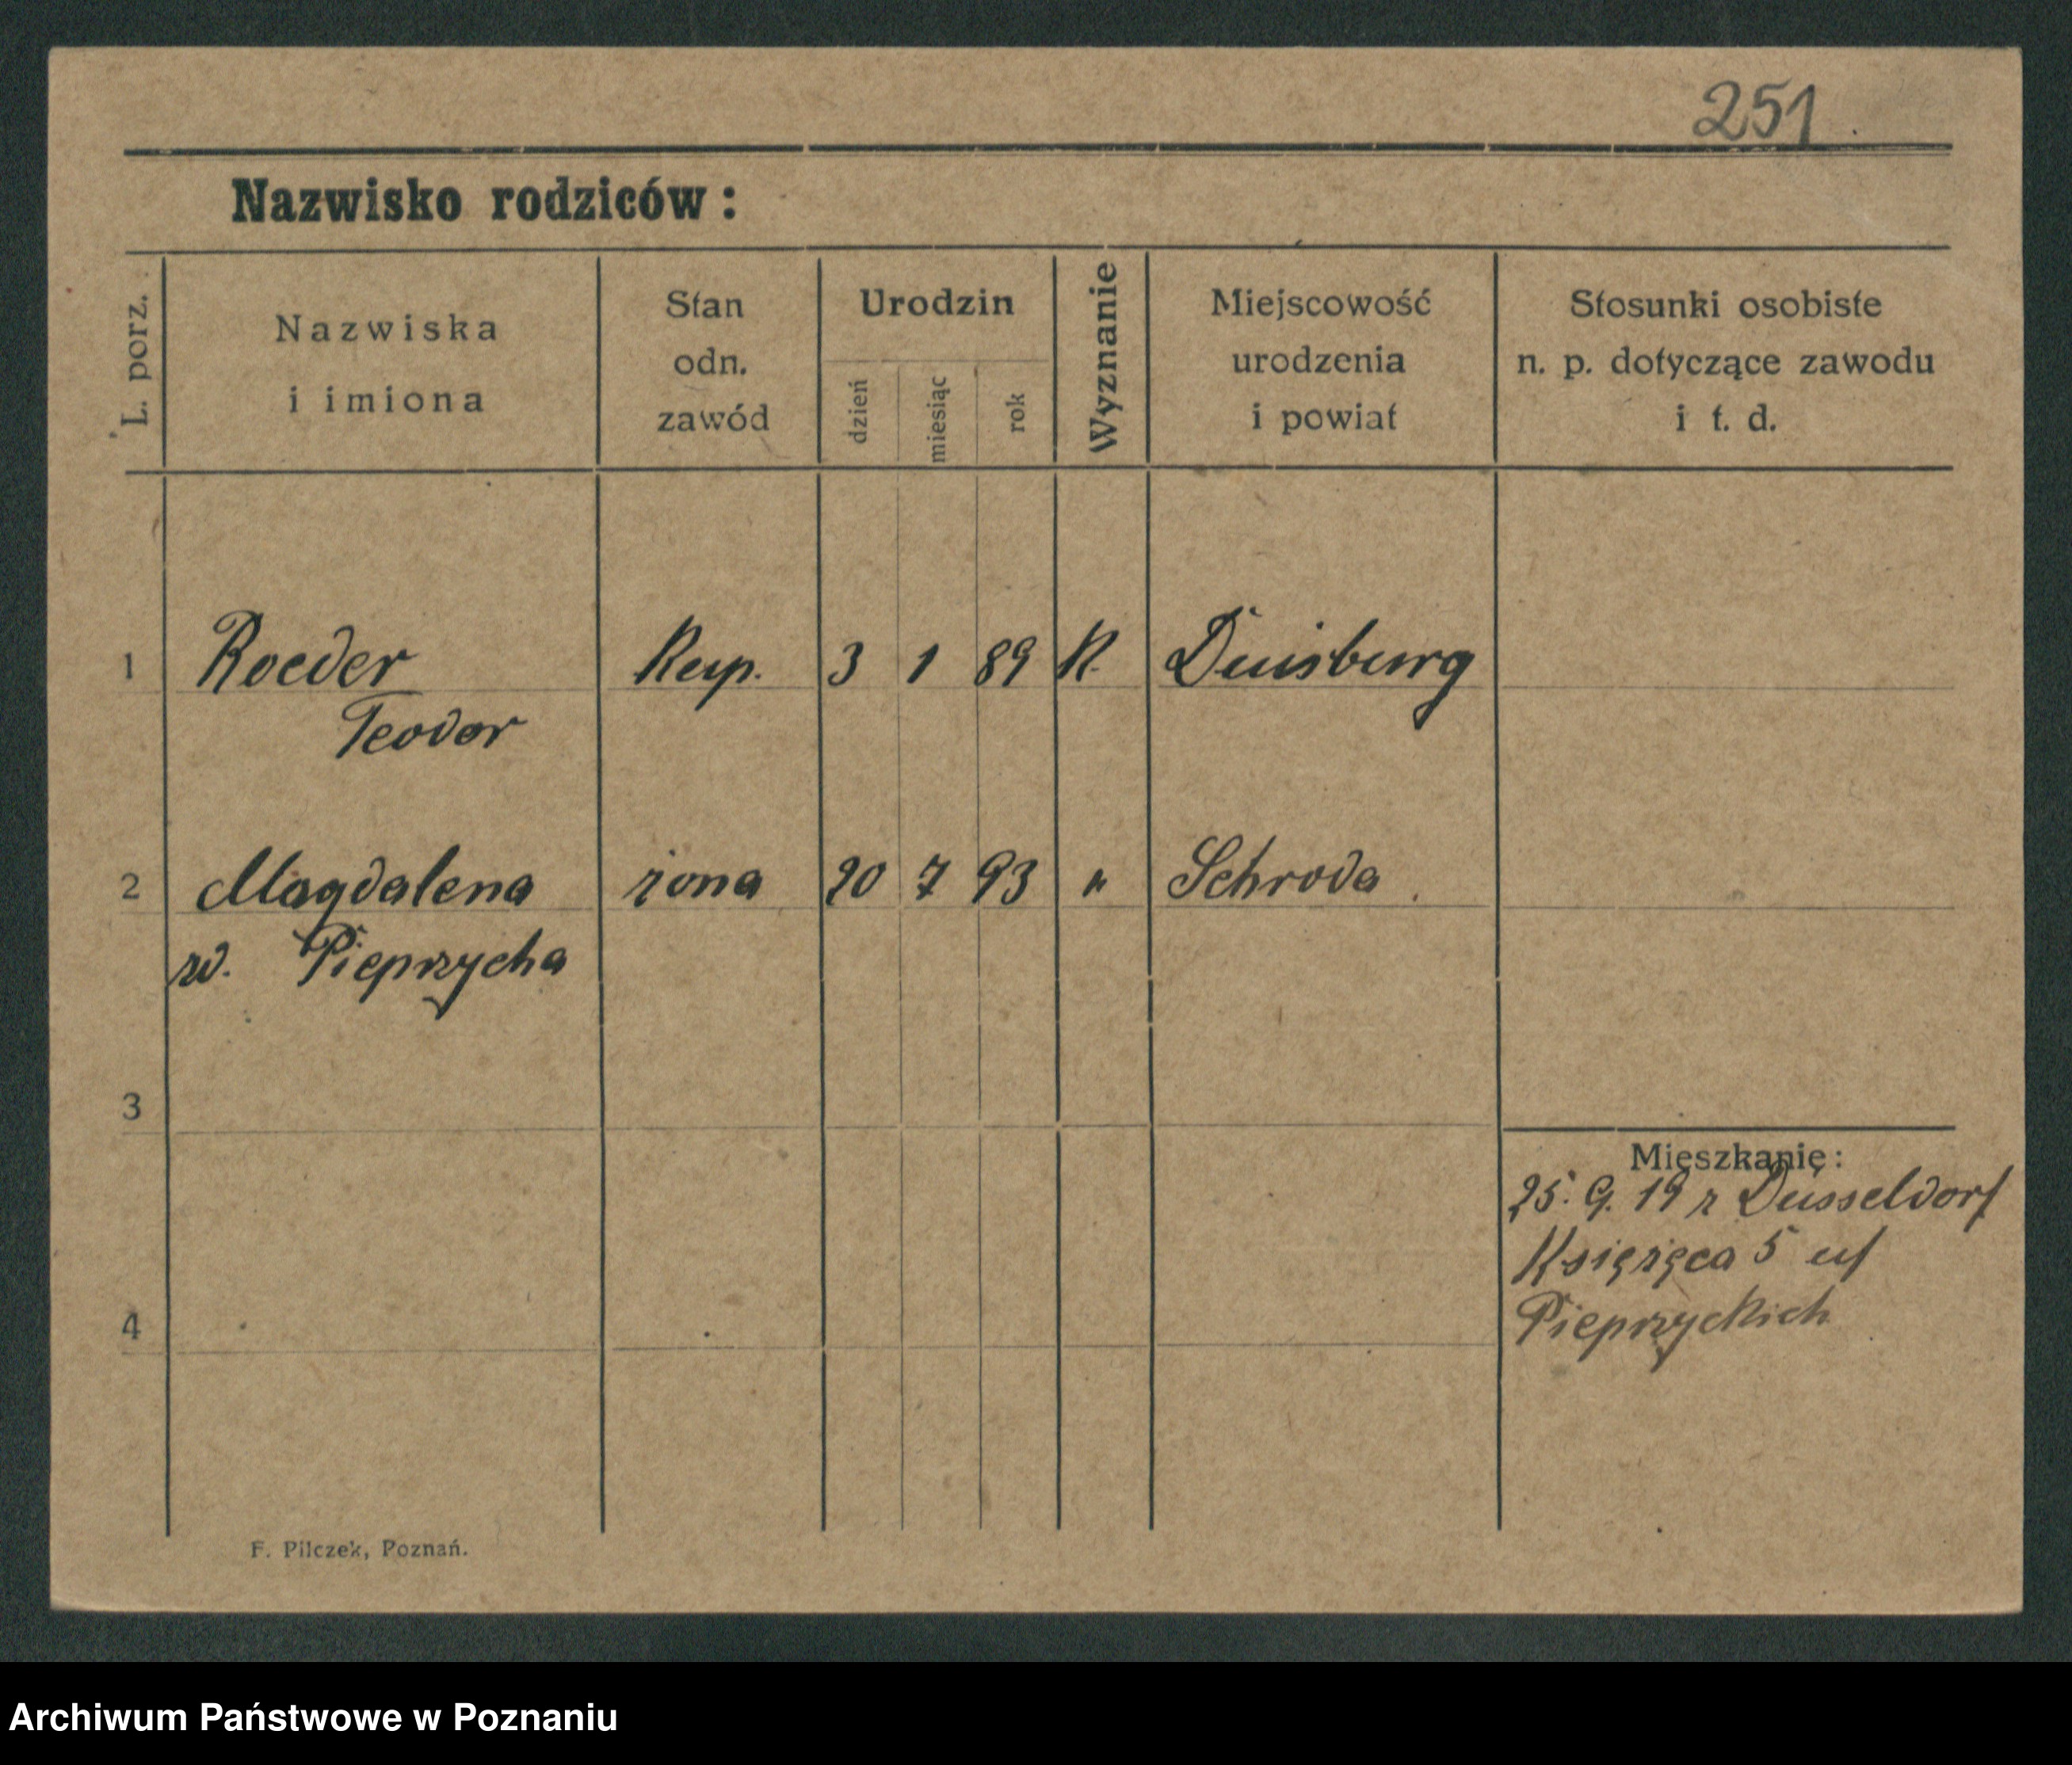 251.
Nazwisko rodziców:
L. porz.
Nazwiska
i imiona
Stan
odn.
zawód
Urodzin
dzień
miesiąc
rok
Wyznanie
Miejscowość
urodzenia
i powiat
Stosunki osobiste
n. p. dotyczące zawodu
i t. d.
1 Roeder 3 1 89 K. Duisburg
Teodor
2 Magdalena żona 20 7 93 " Schroda.
Pieprzycha
3
Mieszkanie:
25. 9. 19 z Düsseldorf
Księżęca 5
Pieprzyckich
4
F. Pilczek, Poznań.
Archiwum Państwowe w Poznaniu